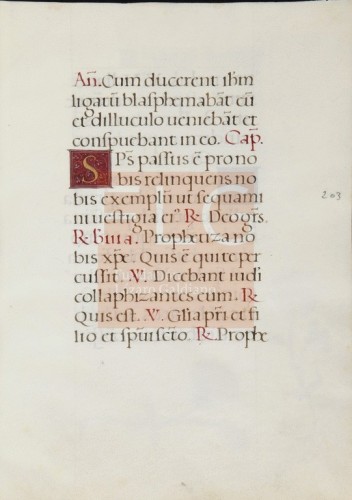 An̄. Cum ducerent ihm̄
ligatū blasphemabāt eū
et dilluculo veniebāt et
conspuebant in eo. Cap̄.
SPs̄ passus ē pro no
bis relinquens no
bis exemplū ut sequami
ni vestigia eiꝰ. R. Deo gr̄s.
R. bīuia. Prophetiza no
bis xp̄e. Quis ē qui te per
cussit. V. Dicebant iudi
collaphizantes eum. R.
Quis est. V. Gl̄ia pr̄i et fi
lio et spūi sc̄to. R. Prophe
203